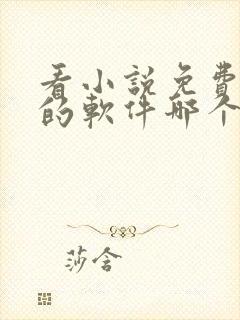 看小説免費
的軟件哪个
莎含